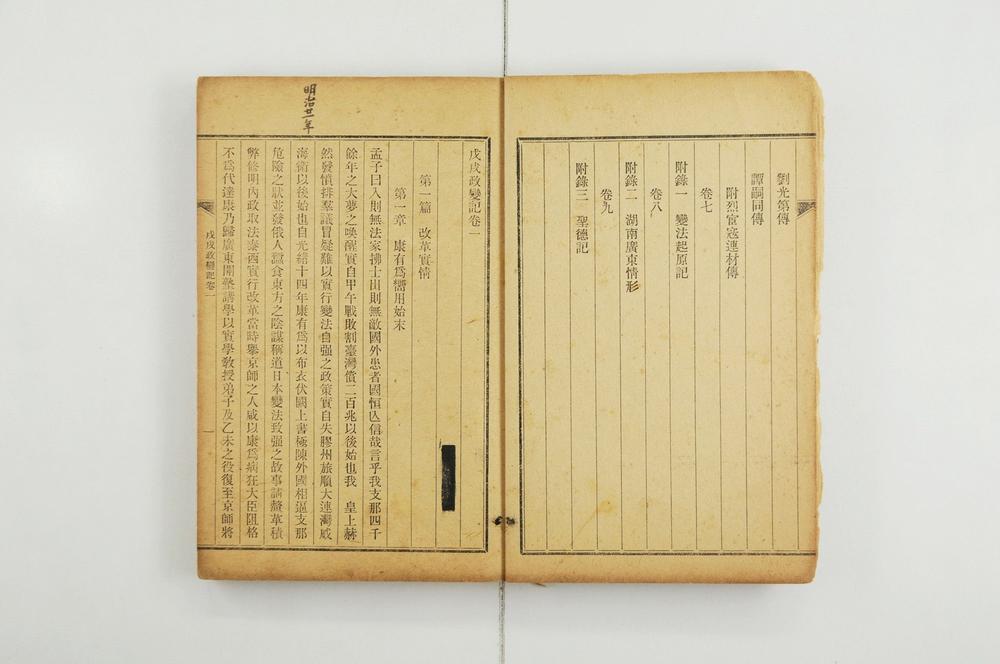 劉光第傳
譚嗣同傳
附烈宦寇連材傳
卷七
附錄一　變法起原記
卷八
附錄二　湖南廣東情形
卷九
附錄三　聖德記
戊戌政變記卷一
第一篇　改革實情
第一章　康有爲嚮用始末
孟子曰入則無法家拂士出則無敵國外患者國恒亾信哉言乎我支那四千
餘年之大夢之喚醒實自甲午戰敗割臺灣償二百兆以後始也我　皇上赫
然發憤排羣議冒疑難以實行變法自强之政策實自失膠州旅順大連灣威
海衞以後始也自光緒十四年康有爲以布衣伏闕上書極陳外國相逼支那
危險之狀並發俄人蠶食東方之陰謀稱道日本變法致强之故事請釐革積
弊修明內政取法泰西實行改革當時舉京師之人咸以康爲病狂大臣阻格
不爲代達康乃歸廣東開塾講學以實學敎授弟子及乙未之役復至京師將
戊戌政變記卷一
一
明治廿一年